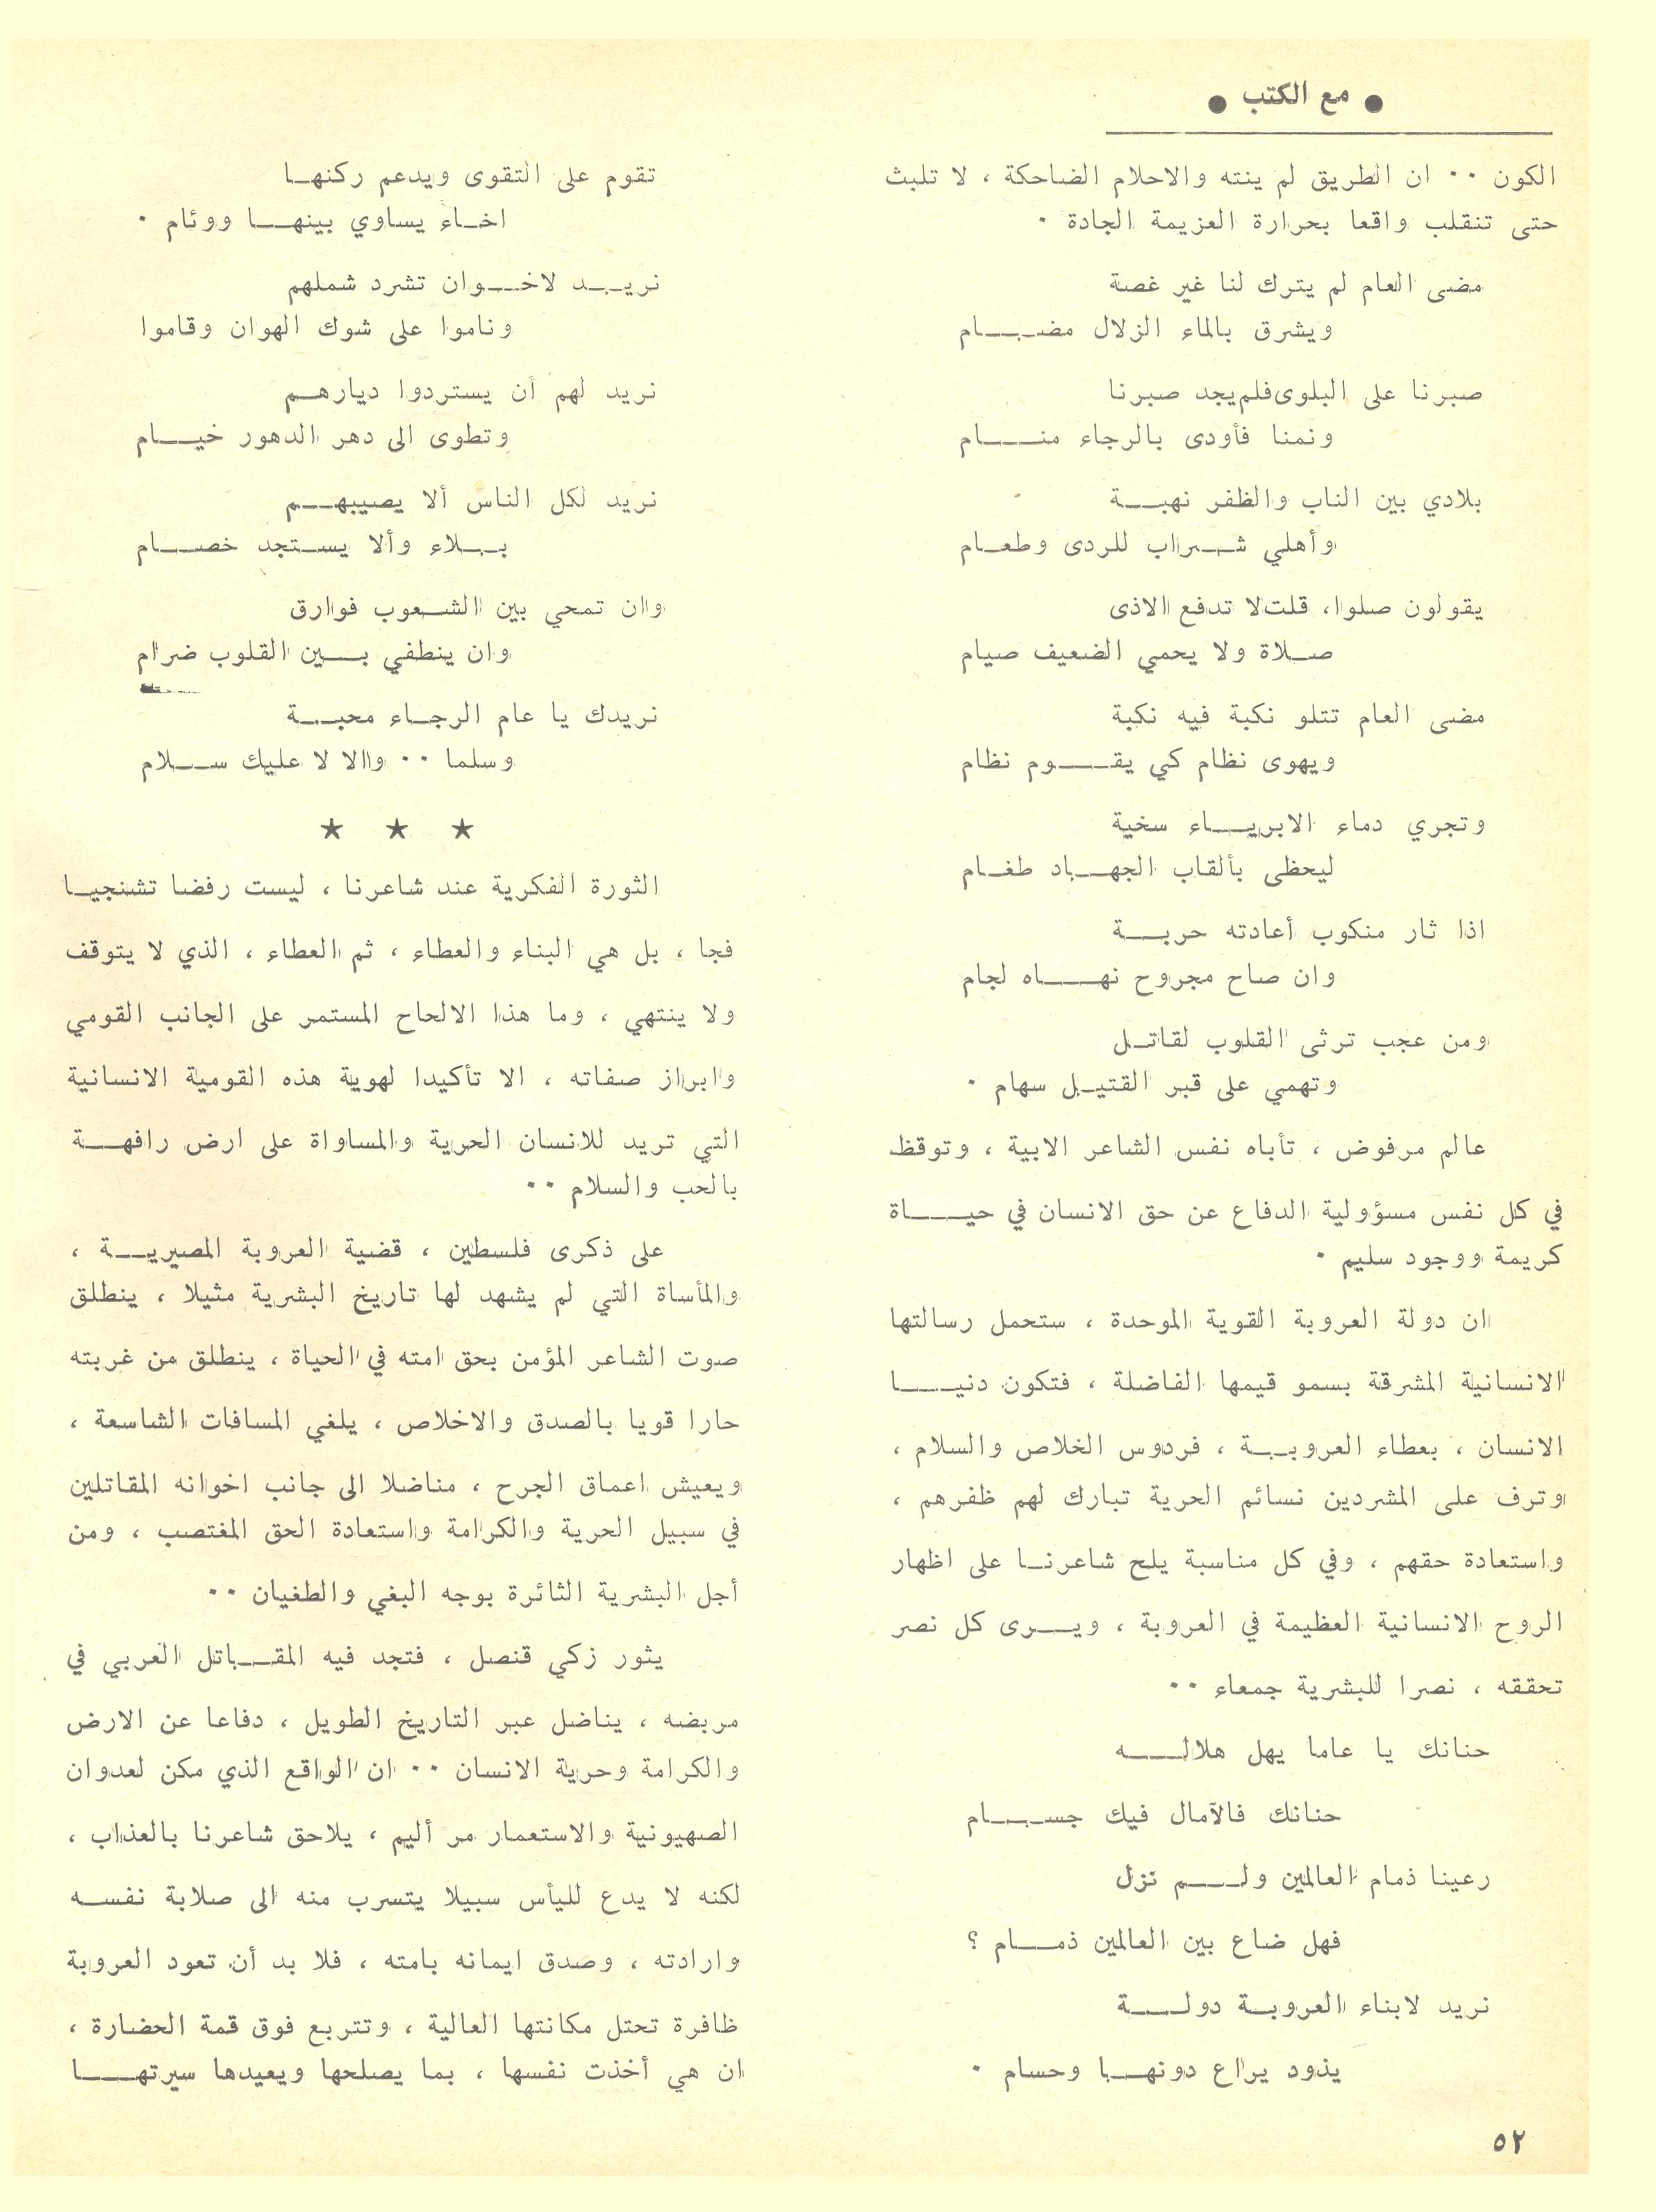 ● مع الكتب ●
الكون ٠٠ ان الطريق لم ينته والاحلام الضاحكة ، لا تلبث
حتى تنقلب واقعا بحرارة العزيمة الجادة ٠
مضى العام لم يترك لنا غير غصة
ويشرق بالماء الزلال مضام
صبرنا على البلوى فلم يجد صبرنا
ونمنا فأودى بالرجاء منام
بلادي بين الناب والظفر نهبة
وأهلي شراب للردى وطعام
يقولون صلوا، قلت لا تدفع الاذى
صلاة ولا يحمي الضعيف صيام
مضى العام تتلو نكبة فيه نكبة
ويهوى نظام كي يقوم نظام
وتجري دماء الابرياء سخية
ليحظى بألقاب الجهاد طغام
اذا ثار منكوب أعادته حربة
وان صاح مجروح نهاه لجام
ومن عجب ترثى القلوب لقاتل
وتهمي على قبر القتيل سهام ٠
عالم مرفوض ، تأباه نفس الشاعر الابية ، وتوقظ
في كل نفس مسؤولية الدفاع عن حق الانسان في حياة
كريمة ووجود سليم ٠
ان دولة العروبة القوية الموحدة ، ستحمل رسالتها
الانسانية المشرقة بسمو قيمها الفاضلة ، فتكون دنيا
الانسان ، بعطاء العروبة ، فردوس الخلاص والسلام ،
وترف على المشردين نسائم الحرية تبارك لهم ظفرهم ،
واستعادة حقهم ، وفي كل مناسبة يلح شاعرنا على اظهار
الروح الانسانية العظيمة في العروبة ، ويرى كل نصر
تحققه ، نصرا للبشرية جمعاء ٠٠
حنانك يا عاما يهل هلاله
حنانك فالآمال فيك جسام
رعينا ذمام العالمين ولم نزل
فهل ضاع بين العالمين ذمام ؟
نريد لابناء العروبة دولة
يذود يراع دونها وحسام ٠
تقوم على التقوى ويدعم ركنها
اخاء يساوي بينها ووئام ٠
نريد لاخوان تشرد شملهم
وناموا على شوك الهوان وقاموا
نريد لهم أن يستردوا ديارهم
وتطوى الى دهر الدهور خيام
نريد لكل الناس ألا يصيبهم
بلاء وألا يستجد خصام
وان تمحي بين الشعوب فوارق
وان ينطفي بين القلوب ضرام
نريدك يا عام الرجاء محبة
وسلما ٠٠ والا لا عليك سلام
★ ★ ★
الثورة الفكرية عند شاعرنا ، ليست رفضا تشنجيا
فجا ، بل هي البناء والعطاء ، ثم العطاء ، الذي لا يتوقف
ولا ينتهي ، وما هذا الالحاح المستمر على الجانب القومي
وابراز صفاته ، الا تأكيدا لهوية هذه القومية الانسانية
التي تريد للانسان الحرية والمساواة على ارض رافهة
بالحب والسلام ٠٠
على ذكرى فلسطين ، قضية العروبة المصيرية ،
والمأساة التي لم يشهد لها تاريخ البشرية مثيلا ، ينطلق
صوت الشاعر المؤمن بحق امته في الحياة ، ينطلق من غربته
حارا قويا بالصدق والاخلاص ، يلغي المسافات الشاسعة ،
ويعيش اعماق الجرح ، مناضلا الى جانب اخوانه المقاتلين
في سبيل الحرية والكرامة واستعادة الحق المغتصب ، ومن
أجل البشرية الثائرة بوجه البغي والطغيان ٠٠
يثور زكي قنصل ، فتجد فيه المقاتل العربي في
مربضه ، يناضل عبر التاريخ الطويل ، دفاعا عن الارض
والكرامة وحرية الانسان ٠٠ ان الواقع الذي مكن لعدوان
الصهيونية والاستعمار مر أليم ، يلاحق شاعرنا بالعذاب ،
لكنه لا يدع لليأس سبيلا يتسرب منه الى صلابة نفسه
وارادته ، وصدق ايمانه بامته ، فلا بد أن تعود العروبة
ظافرة تحتل مكانتها العالية ، وتتربع فوق قمة الحضارة ،
ان هي أخذت نفسها ، بما يصلحها ويعيدها سيرتها
٥٢